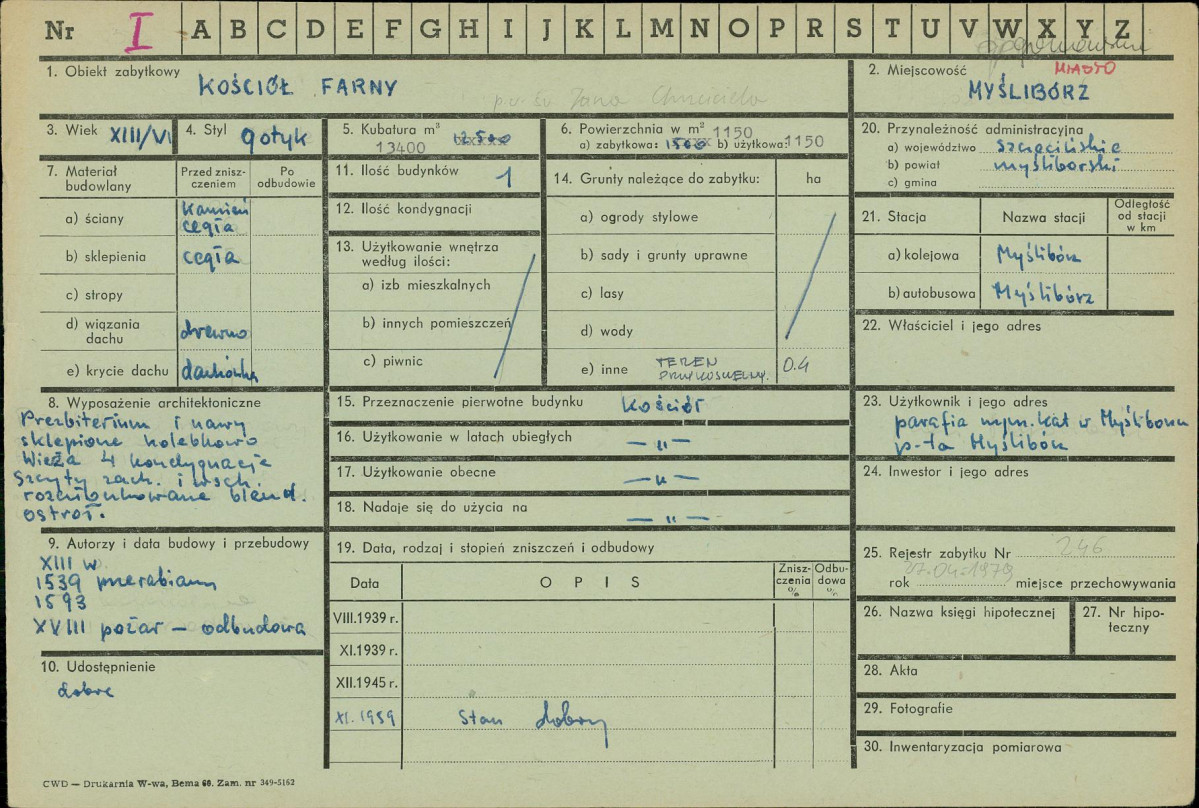 Nr I A B C D E F G H I J K L M N O P R S T U V W X Y Z
1. Obiekt zabytkowy
KOŚCIÓŁ FARNY
p.w. św Jana Chrzciciela
2. Miejscowość
MIASTO
MYŚLIBÓRZ
3. Wiek XIII/VI
4. Styl gotyk
5. Kubatura m³
13400 12500
6. Powierzchnia w m² 1150
a) zabytkowa: 1500 b) użytkowa: 1150
20. Przynależność administracyjna
a) województwo szczecińskie
b) powiat myśliborski
c) gmina
7. Materiał budowlany
Przed znisz-
czeniem
Po
odbudowie
a) ściany kamień
cegła
b) sklepienia cegła
c) stropy
d) wiązania
dachu drewno
e) krycie dachu dachówka
11. Ilość budynków 1
12. Ilość kondygnacji
13. Użytkowanie wnętrza
według ilości:
a) izb mieszkalnych
b) innych pomieszczeń
c) piwnic
14. Grunty należące do zabytku: ha
a) ogrody stylowe
b) sady i grunty uprawne
c) lasy
d) wody
e) inne TEREN
PRZYKOŚCIELNY. 0.4
21. Stacja Nazwa stacji
Odległość
od stacji
w km
a) kolejowa Myślibórz
b) autobusowa Myślibórz
22. Właściciel i jego adres
8. Wyposażenie architektoniczne
Prezbiterium i nawy
sklepione kolebkowo
Wieża 4 kondygnacje
Szczyty zach. i wsch.
rozczłonkowane blend.
ostroł.
15. Przeznaczenie pierwotne budynku kościół
16. Użytkowanie w latach ubiegłych — " —
17. Użytkowanie obecne — " —
18. Nadaje się do użycia na — " —
23. Użytkownik i jego adres
parafia rzym. kat w Myśliborzu
p-ta Myślibórz
24. Inwestor i jego adres
9. Autorzy i data budowy i przebudowy
XIII w
1539 przerabiany
1593
XVIII pożar — odbudowa
10. Udostępnienie
dobre
19. Data, rodzaj i stopień zniszczeń i odbudowy
Data OPIS
Znisz-
czenia
%
Odbu-
dowa
%
VIII.1939 r.
XI.1939 r.
XII.1945 r.
XI. 1959 Stan dobry
25. Rejestr zabytku Nr 246
rok 27.04.1979 miejsce przechowywania
26. Nazwa księgi hipotecznej
27. Nr hipo-
teczny
28. Akta
29. Fotografie
30. Inwentaryzacja pomiarowa
CWD — Drukarnia W-wa, Bema 60. Zam. nr 349-5162